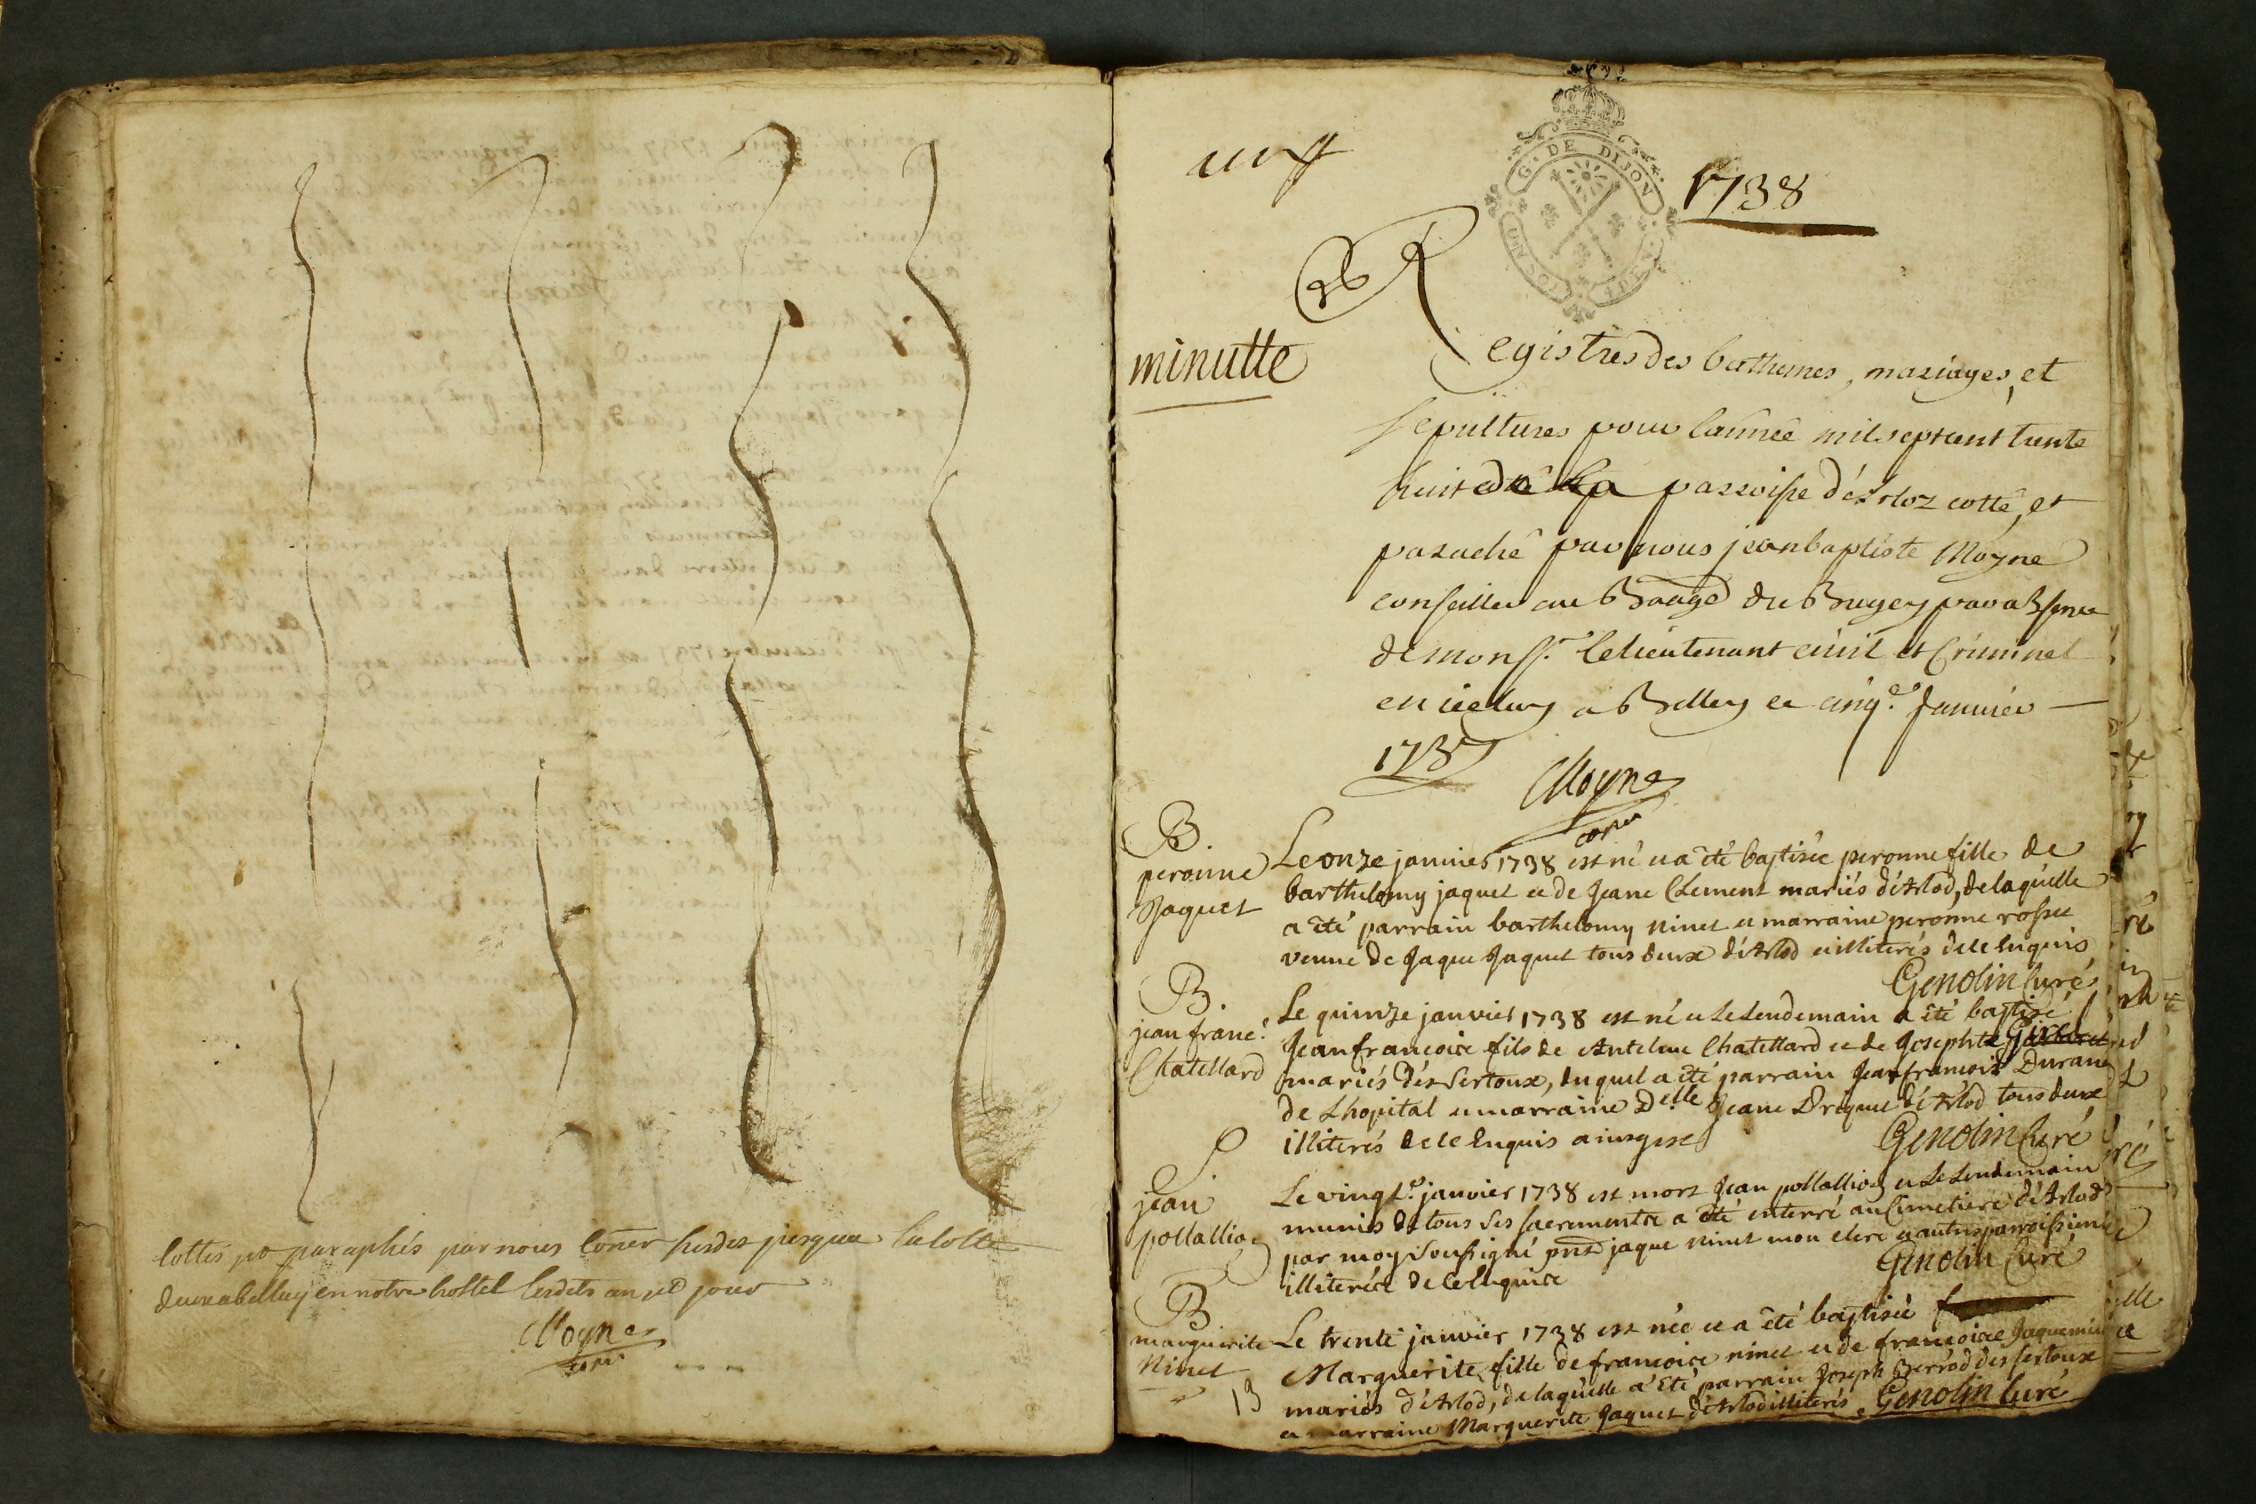 cottés paraphés par nous con.er susdit jusqua la cotte
a belley en notre hostel lesdits an et jour
Moyne
1738
G. DE DIJON
minutte
Registres des bathemes, mariages, et
sepultures pour l'année mil sept cent trente
huit de la parroisse d'Arloz cotté, et
paraché par nous jean baptiste Moyne
conseiller au Baage du Bugey par absence
de mons.r le lieutenant civil et Criminel
en iceluy a Belley ce cinq.e Janvier
Moyne
B.
peronne
Jaquet
Le onze janvier 1738 est né et a été baptisée peronne fille de
barthelomy jaquet et de Jeane Clement mariés d'Arlod, de laquelle
a été parrain barthelomy ninet et marraine peronne rosset
veuve de Jaque Jaquet tous deux d'Arlod et illiterés de ce Enquis
Genolin Curé
B.
jean franc.
Chatellard
Le quinze janvier 1738 est né et Le Lendemain a été baptisé
Jean francois fils de Antelme Chatellard et de Josephte
mariés des Sertoux, duquel a été parrain Jean francois Durand
de Lhopital et marraine Delle Jeane Driguet d'Arlod tous deux
illiterés de ce Enquis
Genolin Curé
S
jean
pollallion
Le vingt.e janvier 1738 est mort Jean pollallion et Le Lendemain
munis de tous ses sacrements a été enterré au Cimetiere d'Arlod
par moy Soussigné pnt jaque ninet mon clerc et autres parroissiens
illiterés de ce Enquis
Genolin Curé
B
marguerite
Ninet
Le trente janvier 1738 est née et a été baptisée
Marguerite fille de francois ninet et de francoise Jaquemin
mariés d'Arlod, de laquelle a été parrain Joseph Berrod des sertoux
et marraine Marguerite Jaquet d'Arlod illiterés Genolin Curé
13